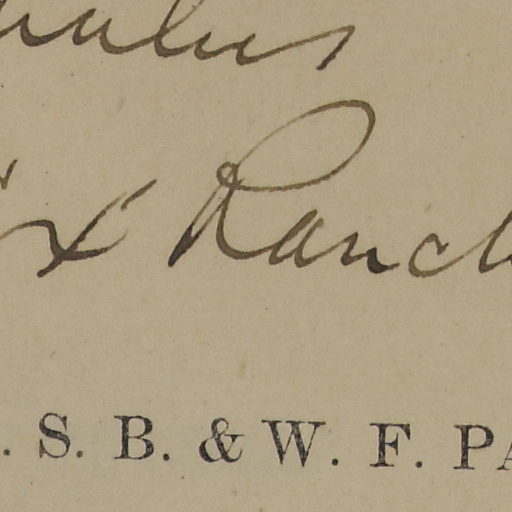 x Ranch
. S. B. & W. F. PA